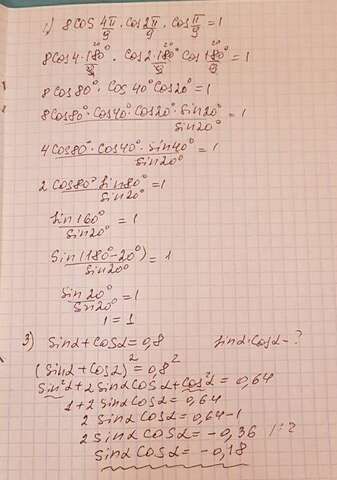 1) 8cos 4π/9 · cos 2π/9 · cos π/9 = 1
8cos 4·180°/9 20° · cos 2·180°/9 20° cos 180°/9 20° = 1
8cos80° · cos40° cos20° = 1
8cos80° · cos40° cos20° · sin20° / sin20° = 1
4cos80° · cos40° · sin40° / sin20° = 1
2cos80° sin80° / sin20° = 1
sin160° / sin20° = 1
sin(180° - 20°) / sin20° = 1
sin20° / sin20° = 1
1 = 1
3) sinα + cosα = 0,8 sinα·cosα - ?
(sinα + cosα)² = 0,8²
sin²α + 2sinα cosα + cos²α = 0,64
1 + 2sinα cosα = 0,64
2 sinα cosα = 0,64 - 1
2 sinα cosα = -0,36 |:2
sinα cosα = -0,18